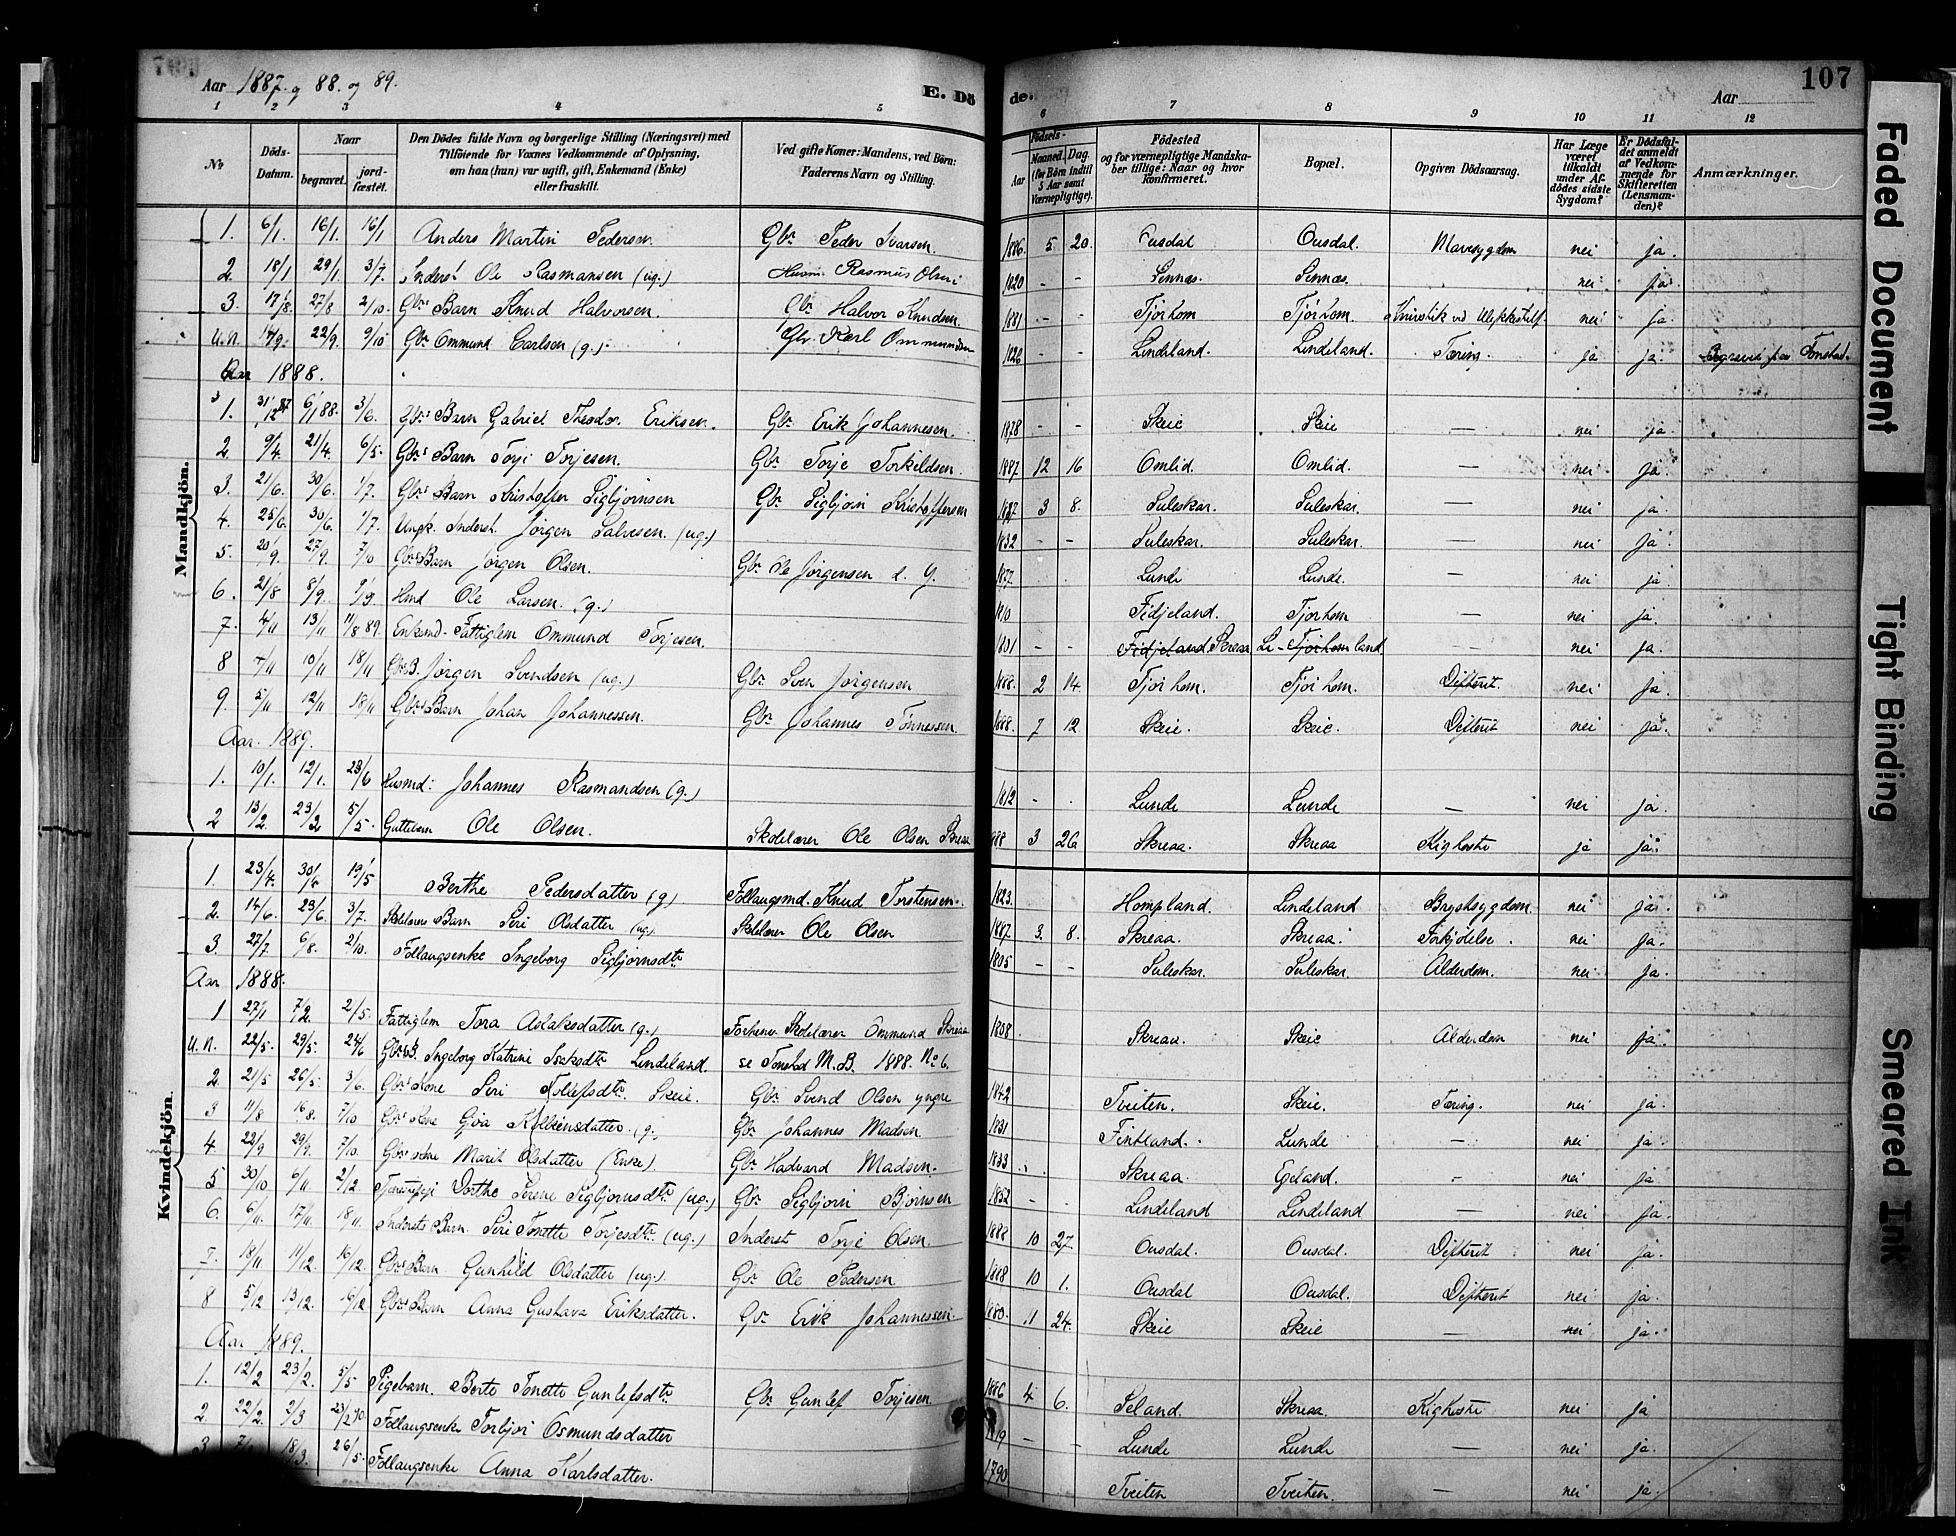 Aar 1887. og 88. og 89.
E. Döde.
Aar
107
1 2 3 4 5 6 7 8 9 10 11 12
No
Döds-Datum.
Naar
begravet.
jordfæstet.
Den Dödes fulde Navn og borgerlige Stilling (Næringsvei) med Tilföiende for Voxnes Vedkommende af Oplysning, om han (hun) var ugift, gift, Enkemand (Enke) eller fraskilt.
Ved gifte Koner: Mandens, ved Börn: Faderens Navn og Stilling.
Födsels-
Aar
Maaned. Dag.
(for Börn indtil 5 Aar samt Værnepligtige).
Födested og for værnepligtige Mandskaber tillige: Naar og hvor konfirmeret.
Bopæl.
Opgiven Dödsaarsag.
Har Læge været tilkaldt under Afdödes sidste Sygdom?
Er Dödsfaldet anmeldt af Vedkommende for Skifteretten (Lensmanden)?
Anmærkninger.
Mandkjön.
1. 6/1. 16/1. 16/1 Anders Martin Pedersen Gbr. Peder Ivarsen. 1886. 5 20. Ousdal Ousdal. Mavesygdom nei ja.
2. 18/1 29/1. 3/7. Inderst Ole Rasmansen (ug.) Husm. Rasmus Olsen 1820 - - Sinnæs. Sinnæs. nei ja.
3. 17/8. 27/8 2/10. Gbrs Barn Knud Halvorsen. Gbr. Halvor Knudsen. 1881 - - Tjörhom Tjörhom. ved Ulykkestilf. nei ja.
U.N. 14/9. 22/9. 9/10 Gbr Ommund Carlsen (g.) Gbr. Karl Ommundsen 1826 - - Lindeland. Lindeland. Tæring. ja ja. Begravet paa Tonstad.
Aar 1888.
1. 31/12 87 6/1 88. 3/6. Gbrs Barn Gabriel Theodor Eriksen. Gbr. Erik Johannesen. 1878 - - Skeie Skeie — nei ja
2. 9/4. 21/4. 6/5. Gbrs Barn Torje Torjesen. Gbr. Torje Torkildsen 1887 12 16 Omlid. Omlid. — nei ja.
3. 21/6. 30/6. 1/7. Gbrs Barn Kristoffer Sigbjörnsen Gbr. Sigbjörn Kristoffersen 1887 3 8. Suleskar. Suleskar. — nei ja.
4. 25/6. 30/6. 1/7. Ungk. Inderst Jörgen Salvesen. (ug.) 1832 - - Suleskar. Suleskar. — nei ja.
5. 20/9. 27/9. 7/10 Gbrs Barn Jörgen Olsen. Gbr. Ole Jörgensen d. Y. Lunde Lunde. — nei ja
6. 21/8 8/9. 9/9 Hmd Ole Larsen. (g.) 1810 Fidjeland. Tjorhom — nei ja.
7. 4/11 13/11 11/8 89. Enkemd. Fattiglem Ommund Torjesen. 1801 - - Fidjeland. Skreaa Li - Tjorhom land — nei ja.
8 4/11 10/11 18/11 Gbrs B. Jörgen Svendsen (ug.) Gbr. Sven Jörgensen 1888. 2 14. Tjorhom. Tjorhom. Difterit. nei ja.
9. 5/11 12/11 18/11 Gbrs Barn Johan Johannessen. Gbr. Johannes Tönnessen 1888. 7 12. Skeie. Skeie. Difterit nei ja.
Aar. 1889.
1. 10/1. 12/1. 23/6 Husmd: Johannes Rasmandsen (g.) 1812 - - Lunde Lunde — nei ja.
2 13/2. 23/2 5/5. Guttebarn Ole Olsen. Skolelærer Ole Olsen Skreaa 888 3 26 Skreaa. Skreaa Kighoste ja ja.
Kvindekjön.
1. 23/4. 30/4 19/5 Berthe Pedersdatter (g) Follaugsmd. Knud Torstensen. 1823. Hompland. Lindeland Brystsygdom. nei ja.
2. 14/6. 23/6. 3/7. Skolelærers Barn Siri Olsdatter (ug.) Skolelærer Ole Olsen 1887 3. 8. Skreaa. Skreaa. Forkjölelse. nei ja.
3. 27/7 6/8. 2/10. Follaugsenke Ingeborg Sigbjörnsdtr 1805 - - Suleskar. Suleskar. Alderdom. nei ja.
Aar 1888.
1 27/1 7/2. 2/5. Fattiglem Tora Aslaksdatter (g.) Forhenv. Skolelærer Ommund Skreaa 1808. Skreaa. Skeie Alderdom nei ja.
U.N. 22/5. 29/5. 24/6 Gbrs B. Ingeborg Katrine Isaksdtr Lindeland. se Tonstad M.B. 1888. No 6.
2. 21/5 26/5. 3/6. Gbrs Kone Siri Tollefsdtr. Skeie. Gbr. Svend Olsen yngre 1842 Tveiten. Skeie. Tæring. nei ja.
3 11/8 16/8. 7/10 Gbrs Kone Gjöa Kolbeinsdatter (g. Gbr. Johannes Madsen 1831 Fintland. Lunde — nei ja.
4 22/9 29/9. 7/10. Marit Olsdatter (Enke) Gbr. Hadvard Madsen. 1833 Skreaa. Egeland. - nei ja.
5 30/10 6/11. 2/12 Dorthe Serene Sigbjörnsdtr (ug.) Gbr. Sigbjörn Björnsen 1852 - - Lindeland Lindeland — nei ja.
6. 6/11. 17/11. 18/11. Indersts Barn. Siri Tonette Torjesdtr. (ug.) Inderst Torje Olsen 1888 10 27. Ousdal. Ousdal. Difterit nei ja.
7. 18/11 14/12. 16/12. Gbrs Barn Gunhild Olsdatter (ug.) Gbr. Ole Pedersen 1888 10 1. Ousdal Ousdal. Difterit nei ja.
8 5/12 13/12. 16/12 Gbrs Barn Anna Gustava Eriksdatter. Gbr. Erik Johannessen. 1880. 11 24. Skeie Skeie — nei ja.
Aar 1889.
1. 12/2 23/2. 5/5 Pigebarn. Berte Tonette Gunlefsdtr Gbr. Gunlef Torjesen. 1886 4 6. Seland. Skreaa. Kighoste nei ja
2. 22/2. 2/3 23/2 90. Follaugsenke Torbjör Osmundsdatter 19 - - Lunde Lunde — nei ja.
3 18/3. 26/5. Follaugsenke Anna Karlsdatter. 1790 Tveiten Tveiten. — nei ja.
Faded Document
Tight Binding
Smeared Ink